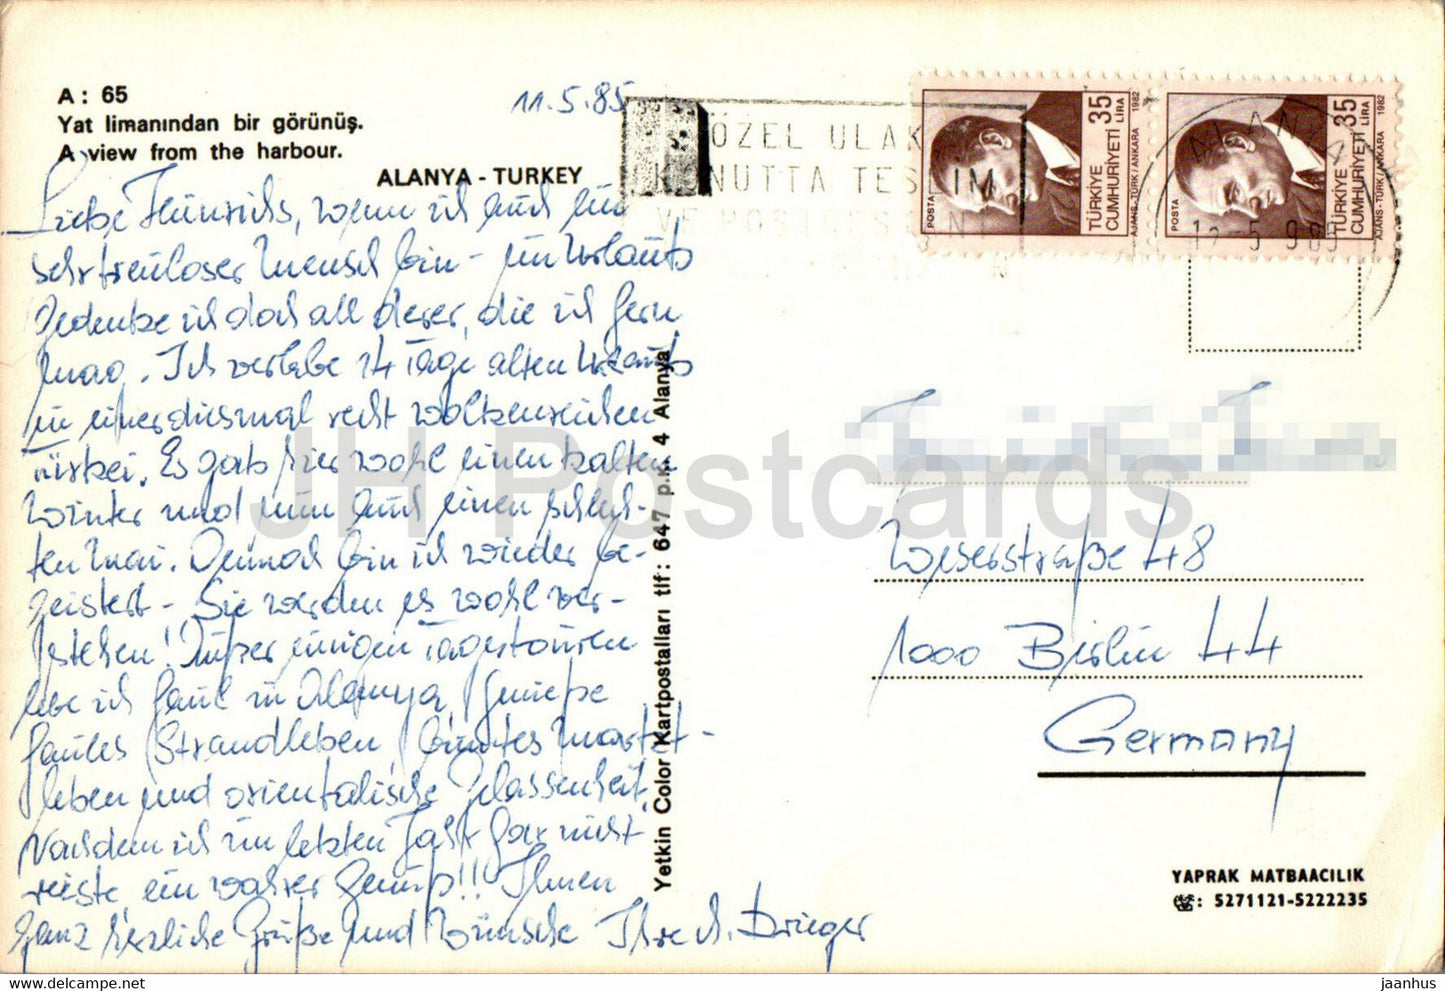 A: 65
Yat limanından bir görünüş.
A view from the harbour.
ALANYA - TURKEY
11.5.85
Liebe Heinrichs, wenn ich auch ein
sehr treuloser Mensch bin - im Urlaub
gedenke ich doch all derer, die ich gern
mag. Ich verlebe 14 Tage alten Urlaub
in einer diesmal recht wolkenreichen
Türkei. Es gab hier wohl einen kalten
Winter und nun auch einen schlech-
ten Mai. Dennoch bin ich wieder be-
geistert - Sie werden es wohl ver-
stehen! Außer einigen Tagestouren
lebe ich faul in Alanya, genieße
faules Strandleben, buntes Markt-
leben und orientalische Gelassenheit.
Nachdem ich im letzten Jahr gar nicht
reiste ein wahrer Genuß!! Ihnen
ganz herzliche Grüße und Wünsche Ihre Krieger
Yetkin Color Kartpostalları tlf: 647 p.k. 4 Alanya
ÖZEL ULAK
KONUTTA TESLİM
VE POSTRESTANT
POSTA
TÜRKİYE
CUMHURİYETİ
35
LİRA
AJANS-TÜRK/ANKARA 1982
POSTA
TÜRKİYE
CUMHURİYETİ
35
LİRA
AJANS-TÜRK/ANKARA 1982
ALANYA
Weserstraße 48
1000 Berlin 44
Germany
YAPRAK MATBAACILIK
☎: 5271121-5222235
JH Postcards
hipstamp.net
jaanhus